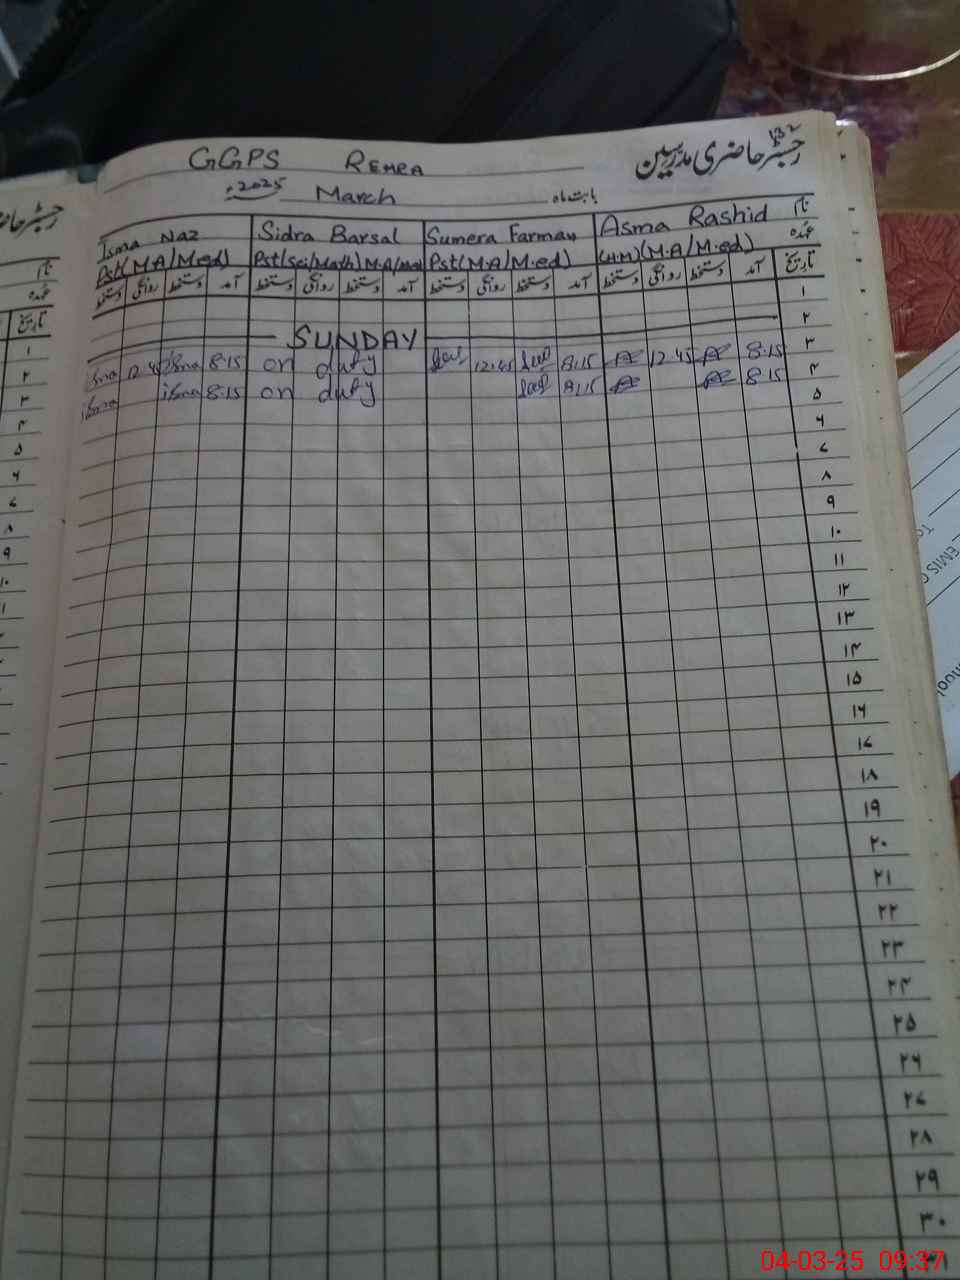 ۱۳۲
GGPS REHRA رجسٹر حاضری مدرسین
2025ء March بابت ماہ
Isma Naz Sidra Barsal Sumera Farman Asma Rashid نام
Pst(M.A/M.ed) Pst(Sci/Math) M.A/ Pst(M.A/M.ed) (H.M)(M.A/M.ed) عہدہ
دستخط روانگی دستخط آمد دستخط روانگی دستخط آمد دستخط روانگی دستخط آمد دستخط روانگی دستخط آمد تاریخ
۱
SUNDAY ۲
isma 12.45 isma 8.15 on duty 12.45 8.15 12.45 8.15 ۳
isma isma 8.15 on duty 8.15 8.15 ۴
۵
۶
۷
۸
۹
۱۰
۱۱
۱۲
۱۳
۱۴
۱۵
۱۶
۱۷
۱۸
۱۹
۲۰
۲۱
۲۲
۲۳
۲۴
۲۵
۲۶
۲۷
۲۸
۲۹
۳۰
۳۱
رجسٹر
نام
عہدہ
تاریخ
۱
۲
۳
۴
۵
۶
۷
۸
۹
۱۰
۱۱
EMIS
04-03-25 09:37